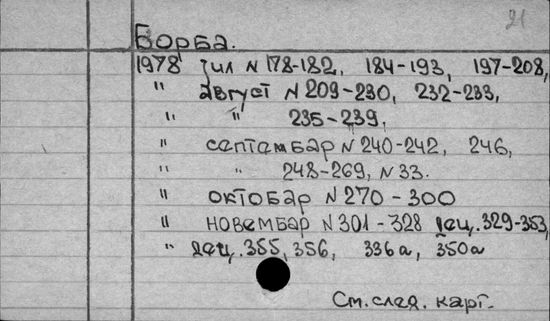 21
Борба.
1978 јул N 178-182, 184-193, 197-208,
" август N 209-230, 232-233,
" " 235-239,
" септембар N 240-242, 246,
" " 248-269, N 33.
" октобар N 270-300
" новембар N 301-328 дец. 329-353,
" дец. 355, 356, 336а, 350а
См. след. карт.